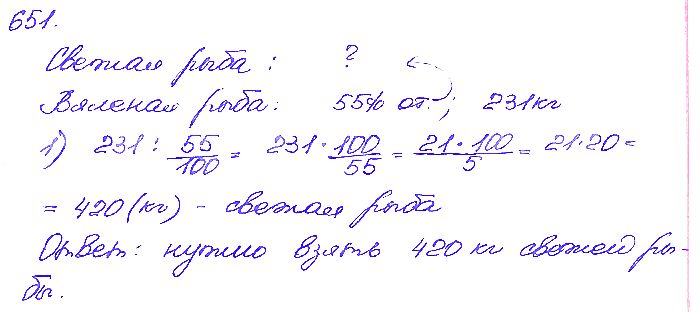 651.
Свежая рыба : ?
Вяленая рыба: 55% от. ; 231 кг
1) 231 : 55/100 = 231 · 100/55 = 21 · 100/5 = 21·20 =
= 420 (кг) - свежая рыба
Ответ: нужно взять 420 кг свежей ры-
бы.